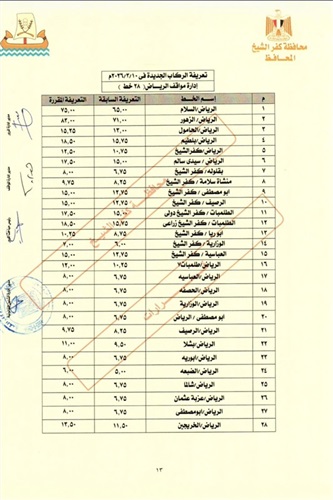 محافظة كفر الشيخ
المحافظ
تعريفة الركاب الجديدة فى ٢٠٢٦/٣/١٠م
إدارة مواقف الرياض ( ٢٨ خط )
م إسم الخط التعريفة السابقة التعريفة المقررة
١ الرياض/السلام ٦٥,٠٠ ٧٥,٠٠
٢ الرياض/الزهور ٧١,٠٠ ٨٢,٠٠
٣ الرياض/الحامول ١٣,٠٠ ١٥,٢٥
٤ الرياض/بلطيم ١٥,٧٥ ١٨,٥٠
٥ الرياض/كفر الشيخ ١٠,٧٥ ١٢,٥٠
٦ الرياض / سيدى سالم ١٥,٠٠ ١٧,٥٠
٧ بقلوله/ كفر الشيخ ٦,٧٥ ٨,٠٠
٨ منشأة سلامة / كفر الشيخ ٨,٢٥ ٩,٧٥
٩ ابو مصطفى / كفر الشيخ ١٢,٧٥ ١٥,٠٠
١٠ الرصيف / كفر الشيخ ١٢,٧٥ ١٥,٠٠
١١ الطلمبات / كفر الشيخ دولى ١٥,٠٠ ١٧,٥٠
١٢ الطلمبات / كفر الشيخ زراعى ١٥,٧٥ ١٨,٥٠
١٣ ابو ريا / كفر الشيخ ٨,٧٥ ١٠,٢٥
١٤ الوزارية / كفر الشيخ ٦,٠٠ ٧,٠٠
١٥ العباسية / كفر الشيخ ١٢,٧٥ ١٥,٠٠
١٦ الرياض/طلمبات٧ ١٠,٢٥ ١٢,٠٠
١٧ الرياض/العباسيه ٦,٧٥ ٨,٠٠
١٨ الرياض/الحصفه ٦,٧٥ ٨,٠٠
١٩ الرياض/الوزارية ٦,٧٥ ٨,٠٠
٢٠ ابو مصطفى / الرياض ٦,٧٥ ٨,٠٠
٢١ الرياض/الرصيف ٨,٢٥ ٩,٧٥
٢٢ الرياض/بشلا ٩,٥٠ ١١,٠٠
٢٣ الرياض/ابوريه ٦,٧٥ ٨,٠٠
٢٤ الرياض/الضبعه ٥,٠٠ ٦,٠٠
٢٥ الرياض/شالما ٦,٧٥ ٨,٠٠
٢٦ الرياض/عزبة عثمان ٦,٧٥ ٨,٠٠
٢٧ الرياض/ابومصطفى ٦,٧٥ ٨,٠٠
٢٨ الرياض/الخريجين ١١,٥٠ ١٣,٥٠
١٣